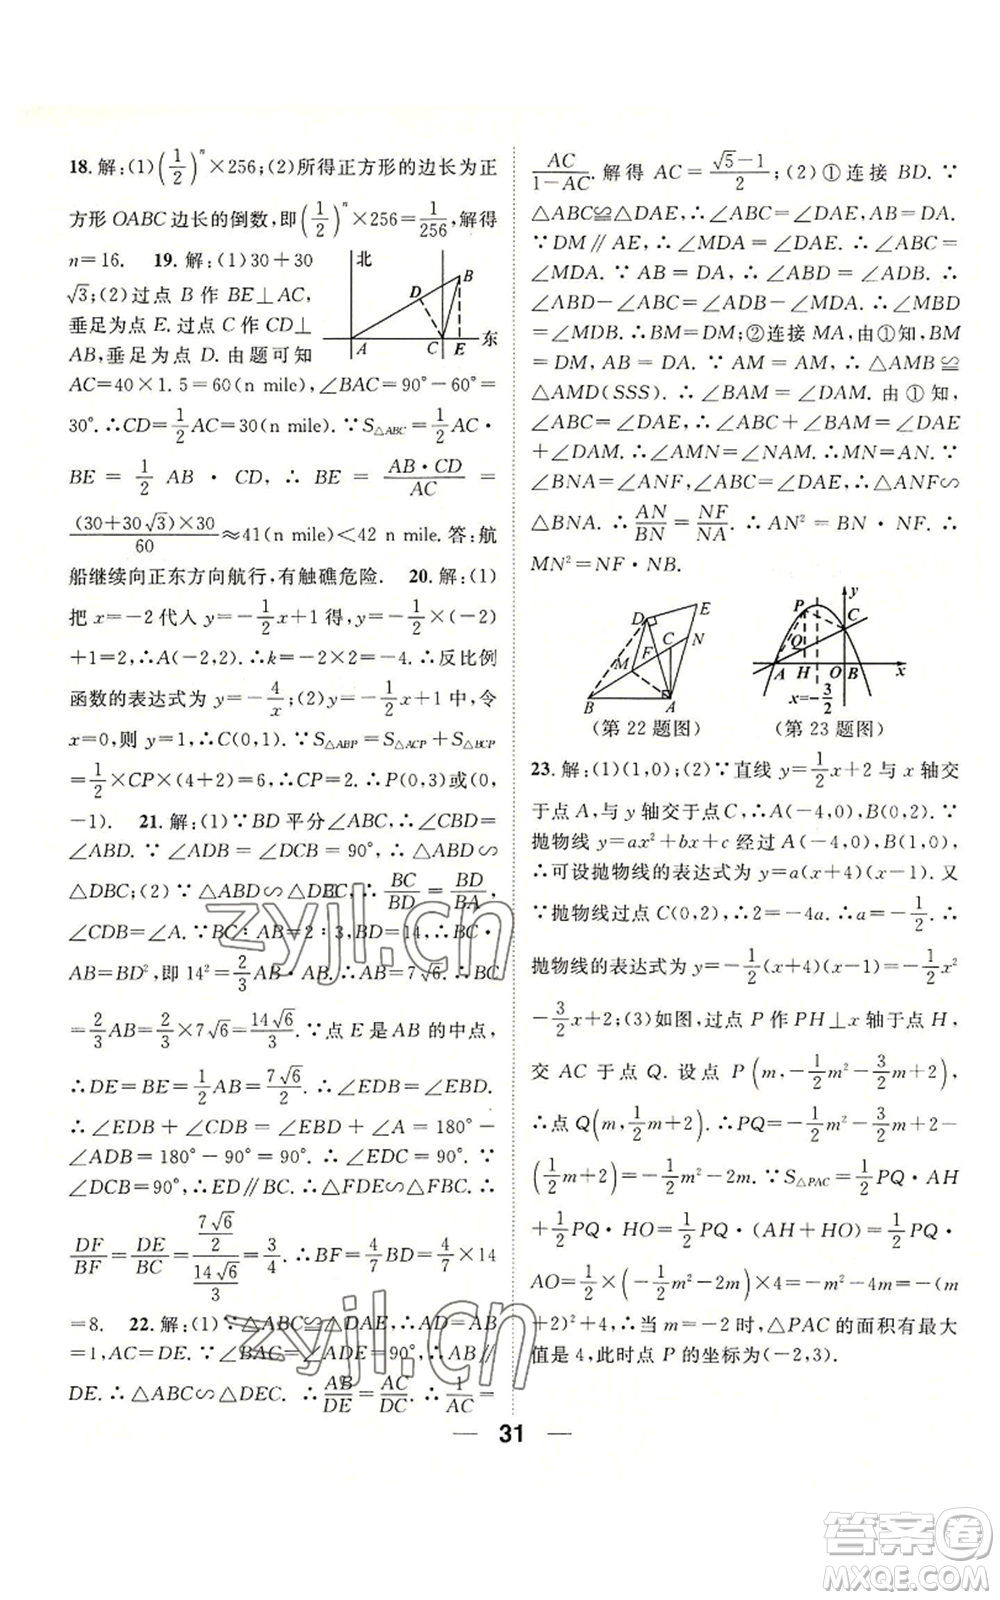 18. 解:(1)(1/2)ⁿ×256;(2)所得正方形的边长为正
方形 OABC 边长的倒数,即(1/2)ⁿ×256=1/256,解得
n=16. 19. 解:(1)30+30
√3;(2)过点 B 作 BE⊥AC,
垂足为点 E. 过点 C 作 CD⊥
AB,垂足为点 D. 由题可知
北
B
D
A
C
E
东
AC=40×1.5=60(n mile),∠BAC=90°-60°=
30°.∴CD=1/2AC=30(n mile).∵S△ABC=1/2AC·
BE=1/2AB·CD,∴BE=AB·CD/AC=
(30+30√3)×30/60≈41(n mile)<42 n mile. 答:航
船继续向正东方向航行,有触礁危险. 20. 解:(1)
把 x=-2 代入 y=-1/2x+1 得,y=-1/2×(-2)
+1=2,∴A(-2,2).∴k=-2×2=-4.∴反比例
函数的表达式为 y=-4/x;(2)y=-1/2x+1 中,令
x=0,则 y=1,∴C(0,1).∵S△ABP=S△ACP+S△BCP
=1/2×CP×(4+2)=6,∴CP=2.∴P(0,3)或(0,
-1). 21. 解:(1)∵BD 平分∠ABC,∴∠CBD=
∠ABD. ∵∠ADB=∠DCB=90°,∴△ABD∽
△DBC;(2)∵△ABD∽△DBC,∴BC/BD=BD/BA,
∠BDC=∠A.∵BC:AB=2:3,BD=14,∴BC·
AB=BD²,即 14²=2/3AB·AB.∴AB=7√6.∴BC
=2/3AB=2/3×7√6=14√6/3.∵点 E 是 AB 的中点,
∴DE=BE=1/2AB=7√6/2.∴∠EDB=∠EBD.
∴∠EDB+∠CDB=∠EBD+∠A=180°-
∠ADB=180°-90°=90°.∴∠EDC=90°.∵
∠DCB=90°,∴DE∥BC.∴△FDE∽△FBC.∴
DF/BF=DE/BC=(7√6/2)/(14√6/3)=3/4.∴BF=4/7BD=4/7×14
=8. 22. 解:(1)∵△ABC≌△DAE,∴AB=AD
=1,AC=DE.∵∠BAC=∠ADE=90°,∴AB∥
DE.∴△ABC∽△DEC.∴AB/DE=AC/DC.∴1/AC=
AC/1-AC.解得 AC=√5-1/2;(2)①连接 BD.∵
△ABC≌△DAE,∴∠ABC=∠DAE,AB=DA.
∵DM∥AE,∴∠MDA=∠DAE.∴∠ABC=
∠MDA.∵AB=DA,∴∠ABD=∠ADB.∴
∠ABD-∠ABC=∠ADB-∠MDA.∴∠MBD
=∠MDB.∴BM=DM;②连接 MA,由①知,BM=
DM=DM,AB=DA.∵AM=AM,∴△AMB≌
△AMD(SSS).∴∠BAM=∠DAM.由①知,
∠ABC=∠DAE,∴∠ABC+∠BAM=∠DAE
+∠DAM.∴∠AMN=∠NAM.∴MN=AN.∵
∠NBA=∠ANF,∠ANF=∠BNA,∴△ANF∽
△BNA.∴AN/BN=NF/AN.∴AN²=BN·NF.∴
MN²=NF·BN.
D
E
C
N
F
M
B
A
(第 22 题图)
y
P
C
Q
A
H
O
B
x
x=-3/2
(第 23 题图)
23. 解:(1)(1,0);(2)∵直线 y=1/2x+2 与 x 轴交
于点 A,与 y 轴交于点 C,∴A(-4,0),B(0,2).∵
抛物线 y=ax²+bx+c 经过 A(-4,0),B(1,0),
∴可设抛物线的表达式为 y=a(x+4)(x-1). 又
∵抛物线过点 C(0,2),∴2=-4a.∴a=-1/2.∴
抛物线的表达式为 y=-1/2(x+4)(x-1)=-1/2x²
-3/2x+2;(3)如图,过点 P 作 PH⊥x 轴于点 H,
交 AC 于点 Q. 设点 P(m,-1/2m²-3/2m+2),
∴点 Q(m,1/2m+2).∴PQ=-1/2m²-3/2m+2-
(1/2m+2)=-1/2m²-2m.∵S△PAC=1/2PQ·AH
+1/2PQ·HO=1/2PQ·(AH+HO)=1/2PQ·
AO=1/2×(-1/2m²-2m)×4=-m²-4m=-(m
+2)²+4,∴当 m=-2 时,△PAC 的面积有最大
值是 4,此时点 P 的坐标为(-2,3).
31
zyjl.cn
zyjl.cn
答案卷
MXQE.COM